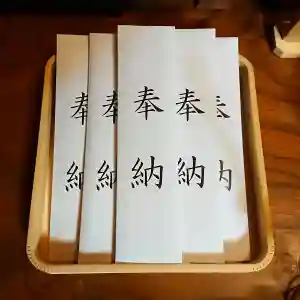 奉納
奉納
奉納
奉納
奉納